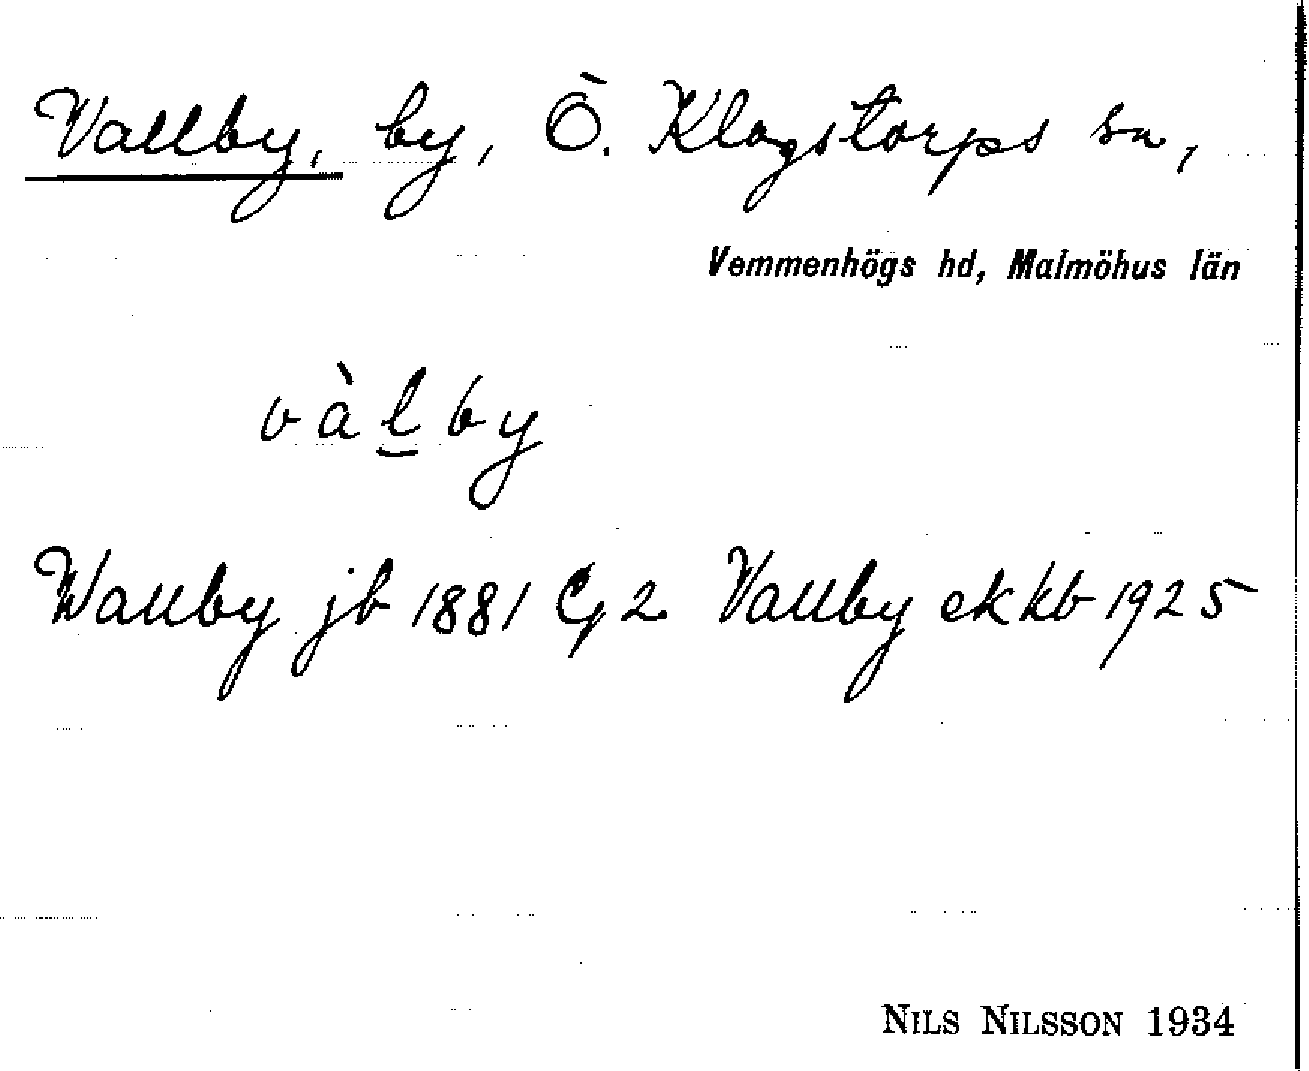 Vallby, by, Ö. Klagstorps sn,
Vemmenhögs hd, Malmöhus län
vàl̲by
Wallby jb 1881 Cg 2 Vallby ekkb 1925
NILS NILSSON 1934